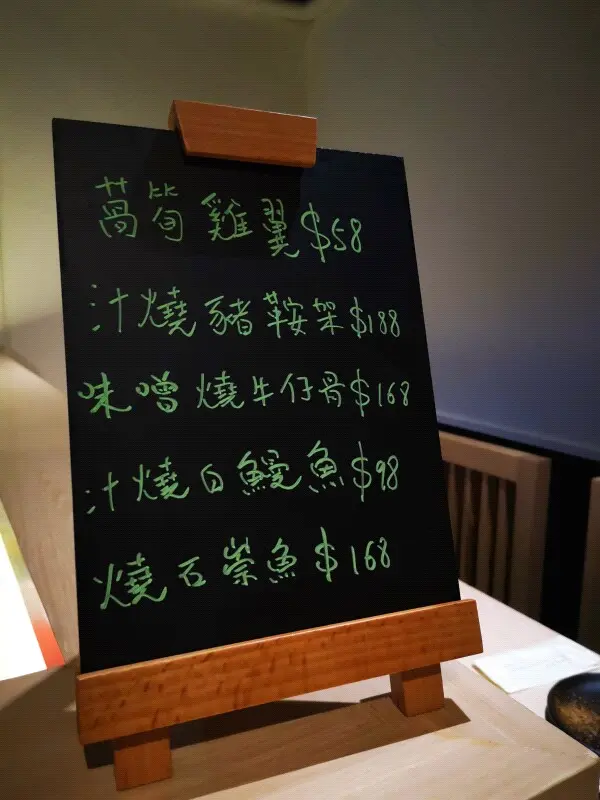 萵筍雞翼$58
汁燒豬鞍架$188
味噌燒牛仔骨$168
汁燒白鰻魚$98
燒石崇魚$168